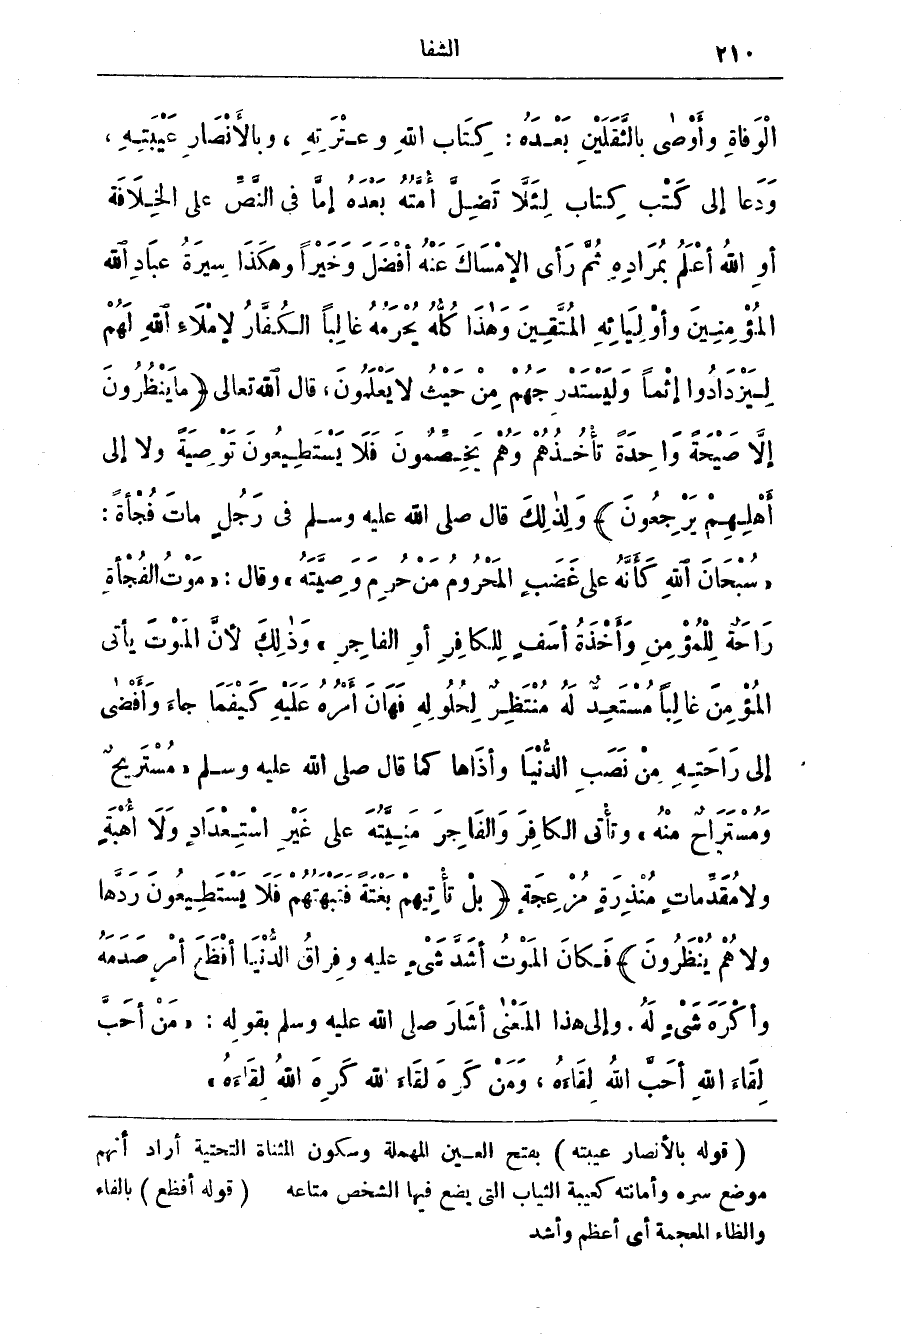 ٢١٠
الشفا
الْوَفاةِ وأَوْصٰى بالثَّقَلَيْنِ بَعْدَهُ : كِتَابِ اللهِ وعِتْرَتِهِ ، وبالأَنْصَارِ عَيْبَتِهِ ،
وَدَعا إلى كَتْبِ كِتابٍ لِئَلَّا تَضِلَّ أُمَّتُهُ بَعْدَهُ إمَّا فى النَّصِّ على الْخِلَافَةِ
أوِ اللهُ أعْلَمُ بِمُرَادِهِ ثُمَّ رَأى الإمْسَاكَ عَنْهُ أفْضَلَ وَخَيْراً وهكَذَا سِيرَةُ عبادِ اللهِ
المُؤْمِنِينَ وأوْلِيَائِهِ المُتَّقِينَ وَهٰذَا كُلُّهُ يُحْرَمُهُ غالِباً الكُفَّارُ لإمْلَاءِ اللهِ لَهُمْ
لِيَزْدَادُوا إثْماً وَلِيَسْتَدْرِجَهُمْ مِنْ حَيْثُ لايَعْلَمُونَ، قال الله تعالى ﴿ ماَيَنْظُرُونَ
إلَّا صَيْحَةً وَاحِدَةً تأْخُذُهُمْ وَهُمْ يَخِصِّمُونَ فَلَا يَسْتَطِيعُونَ تَوْصِيَةً ولا إلى
أَهْلِهِمْ يَرْجِعُونَ ﴾ وَلِذٰلِكَ قال صلى الله عليه وسلم فى رَجُلٍ ماتَ فُجْأةً :
« سُبْحَانَ اللهِ كَأَنَّهُ على غَضَبٍ المَحْرُومُ مَنْ حُرِمَ وَصِيَّتَهُ » وقال : « مَوْتُ الفُجْأةِ
رَاحَةٌ لِلْمُؤْمِنِ وَأَخْذَةُ أسَفٍ لِلكافِرِ أوِ الفاجِرِ » وَذٰلِكَ لأنَّ المَوْتَ يأتى
المُؤْمِنَ غالِباً مُسْتَعِدٌّ لَهُ مُنْتَظِرٌ لِحُلُولِهِ فَهَانَ أمْرُهُ عَلَيْهِ كَيْفَمَا جاءَ وَأَفْضٰى
إلى رَاحَتِهِ مِنْ نَصَبِ الدُّنْيَا وأذَاها كما قال صلى الله عليه وسلم « مُسْتَرِيحٌ
وَمُسْتَرَاحٌ منْهُ » وتأْتى الكافِرَ وَالفَاجِرَ مَنِيَّتُهُ على غَيْرِ اسْتِعْدَادٍ وَلَا أُهْبَةٍ
ولا مُقَدِّماتٍ مُنْذِرَةٍ مُزْعِجَةٍ ﴿ بلْ تأْتِيهِمْ بَغْتَةً فَتَبْهَتُهُم فَلَا يَسْتَطِيعُونَ رَدَّها
ولا هُمْ يُنْظَرُونَ ﴾ فَكانَ المَوْتُ أشَدَّ شَىْءٍ عليه وفِراقُ الدُّنْيَا أفْظَعَ أمْرٍ صَدَمَهُ
وأكْرَهَ شَىْءٍ لَهُ . وإلى هذا المَعْنٰى أشَارَ صلى الله عليه وسلم بقوله : « مَنْ أحَبَّ
لِقَاءَ اللهِ أحَبَّ اللهُ لِقَاءَهُ ، وَمَنْ كَرِهَ لقَاءَ اللهِ كَرِهَ اللهُ لِقَاءَهُ »
( قوله بالأنصار عيبته ) بفتح العين المهملة وسكون المثناة التحتية أراد أنهم
موضع سره وأمانته كعيبة الثياب التى يضع فيها الشخص متاعه ( قوله أفظع ) بالفاء
والظاء المعجمة أى أعظم وأشد